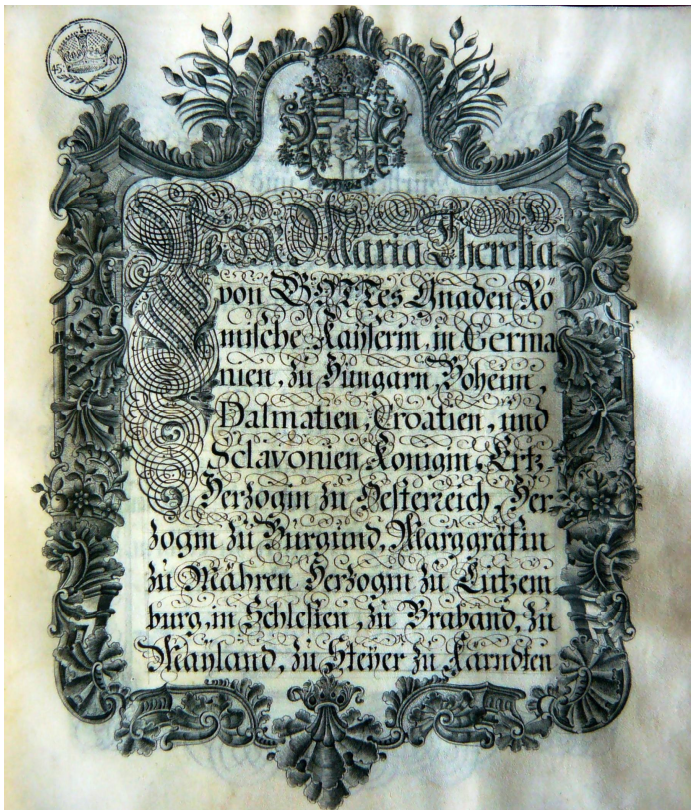 45. Kr.
Wir Maria Theresia
von GOTTes Gnaden Rö-
mische Kaÿserin, in Germa
nien, zu Hungarn, Boheim,
Dalmatien, Croatien, und
Sclavonien Königin, Ertz-
Herzogin zu Oesterreich, Her-
zogin zu Burgund, Marggräfin
zu Mähren, Herzogin zu Lützem
burg, in Schlesien, zu Braband, zu
Mayland, zu Steÿer zu Kärndten